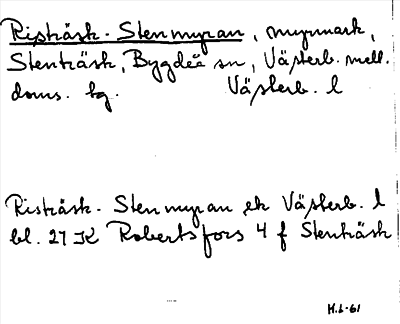 Risträsk-Stenmyran, myrmark,
Stenträsk, Bygdeå sn, Västerb. mell.
doms. hg. Västerb. l
Risträsk-Stenmyran ek Västerb. l
bl. 27 IK Robertsfors 4 f Stenträsk
H.L-61